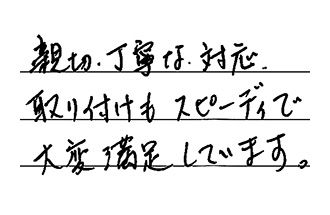 親切.丁寧な.対応.
取り付けも スピーディで
大変満足しています。